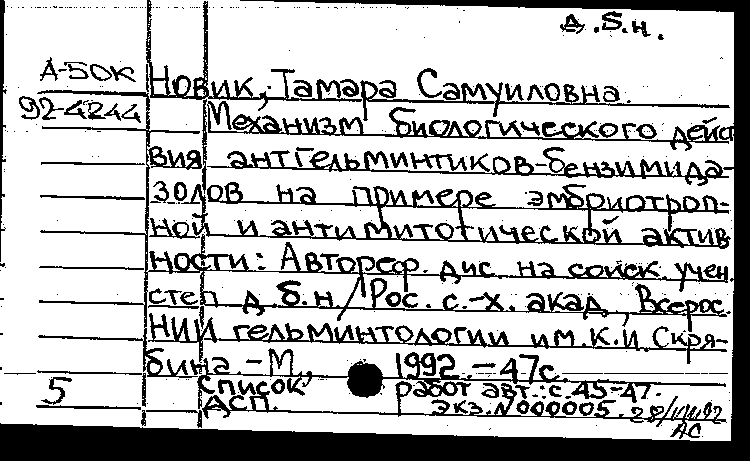 д.б.н.
А-50К
92-4244
Новик, Тамара Самуиловна.
Механизм биологического дейст
вия антгельминтиков-бензимида-
золов на примере эмбриотроп-
ной и антимитотической актив
ности: Автореф. дис. на соиск. учен.
степ д.б.н./Рос. с.-х. акад., Всерос.
НИИ гельминтологии им. К.И. Скря-
бина.-М., 1992.-47с.
5 Список работ авт.: с.45-47.
ДСП. Экз. N000005.
АС